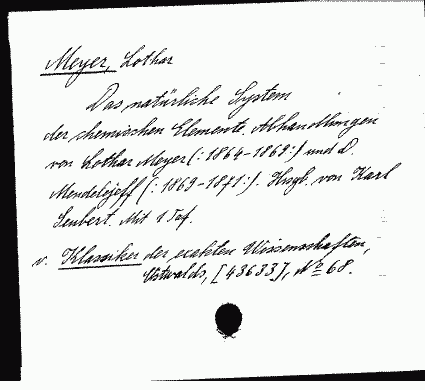 Meyer, Lothar
Das natürliche System
der chemischen Elemente. Abhandlungen
von Lothar Meyer (: 1864-1869 :) und D.
Mendelejeff (: 1869-1871 :). Hrsgb. von Karl
Seubert. Mit 1 Taf.
v. Klassiker der exakten Wissenschaften,
Ostwalds, [43633], No 68.